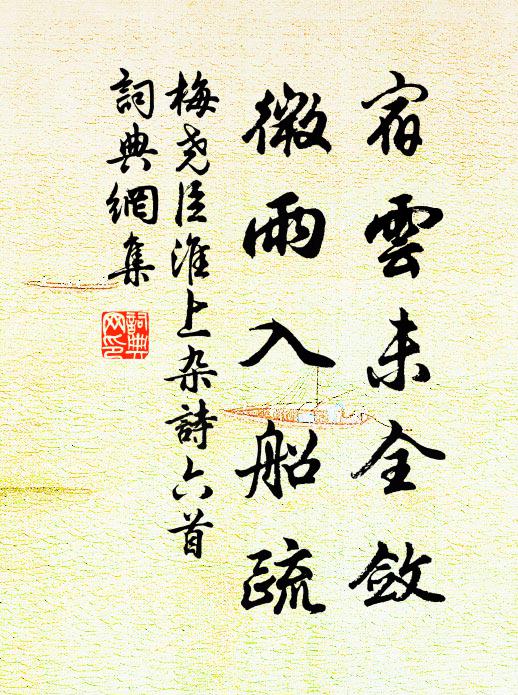 宿雲未全斂
微雨入船疏
梅尧臣淮上杂詩六首
詞典網集
詞典網印